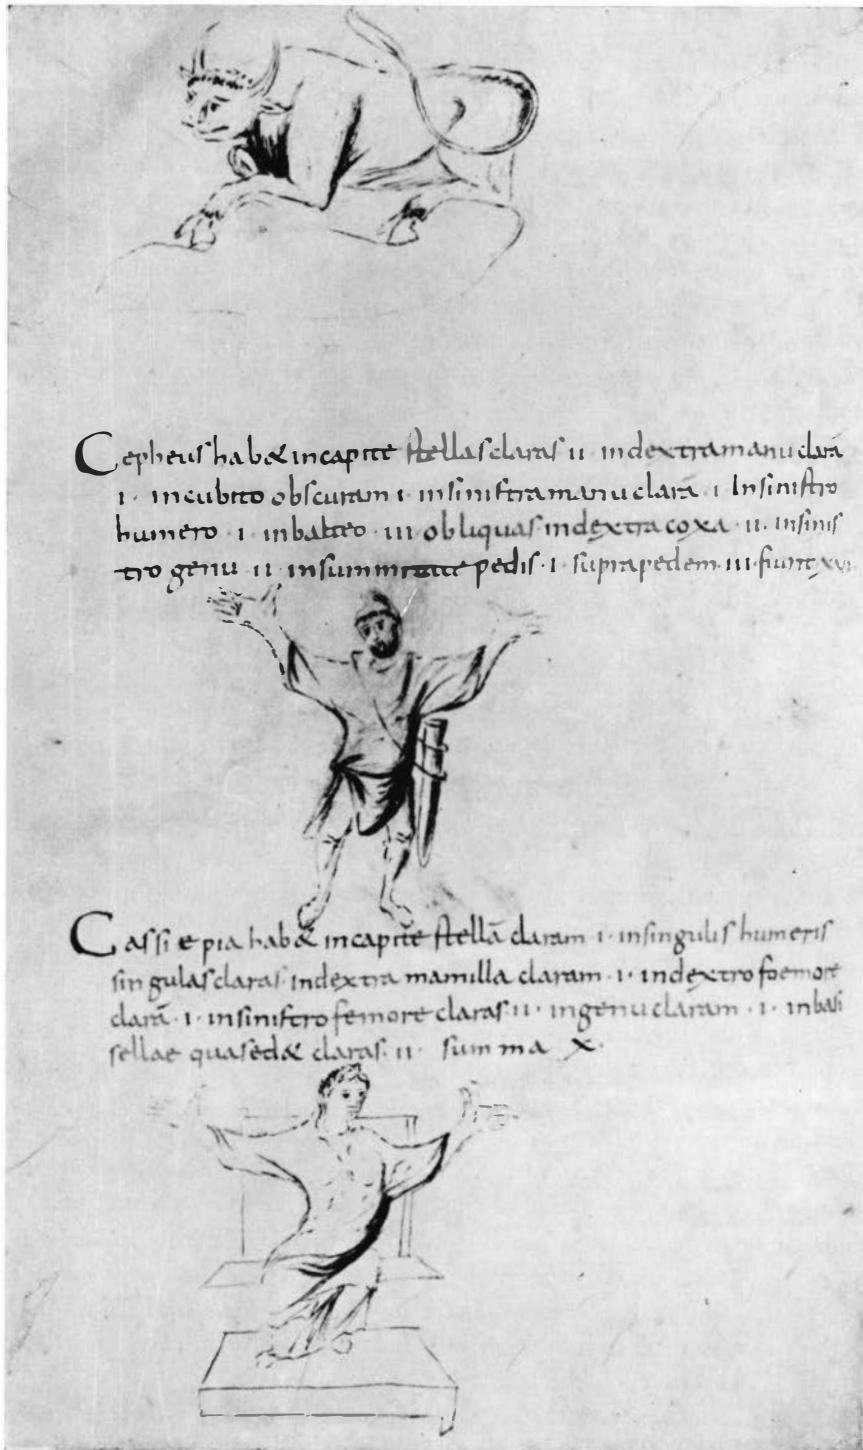 Cepheus habet incapite stellas claras ii · indextramanu clarā
i · incubito obscuram i · insinistramanu clarā i Insinistro
humero · i · inbalteo · iii obliquas indextra coxa · ii · insinis
tro genu · ii · insummitate pedis · i · suprapedem iii fiunt
Cassiepia habet incapite stellā claram i · insingulis humeris
singulas claras indextra mamilla claram · i · indextro foemore
clarā · i · insinistro femore claras ii · ingenu claram · i · inbasi
sellae quasedet claras · ii · summa x ·